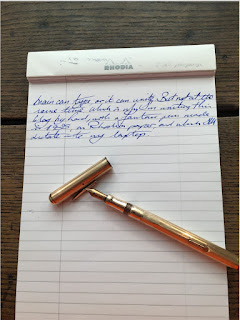 RHODIA
Brain can type, or it can write. But not at the
same time. Which is why I'm writing this
blog by hand, with a fountain pen made
in, on Rhodia paper, and which I'll
dictate into my laptop.